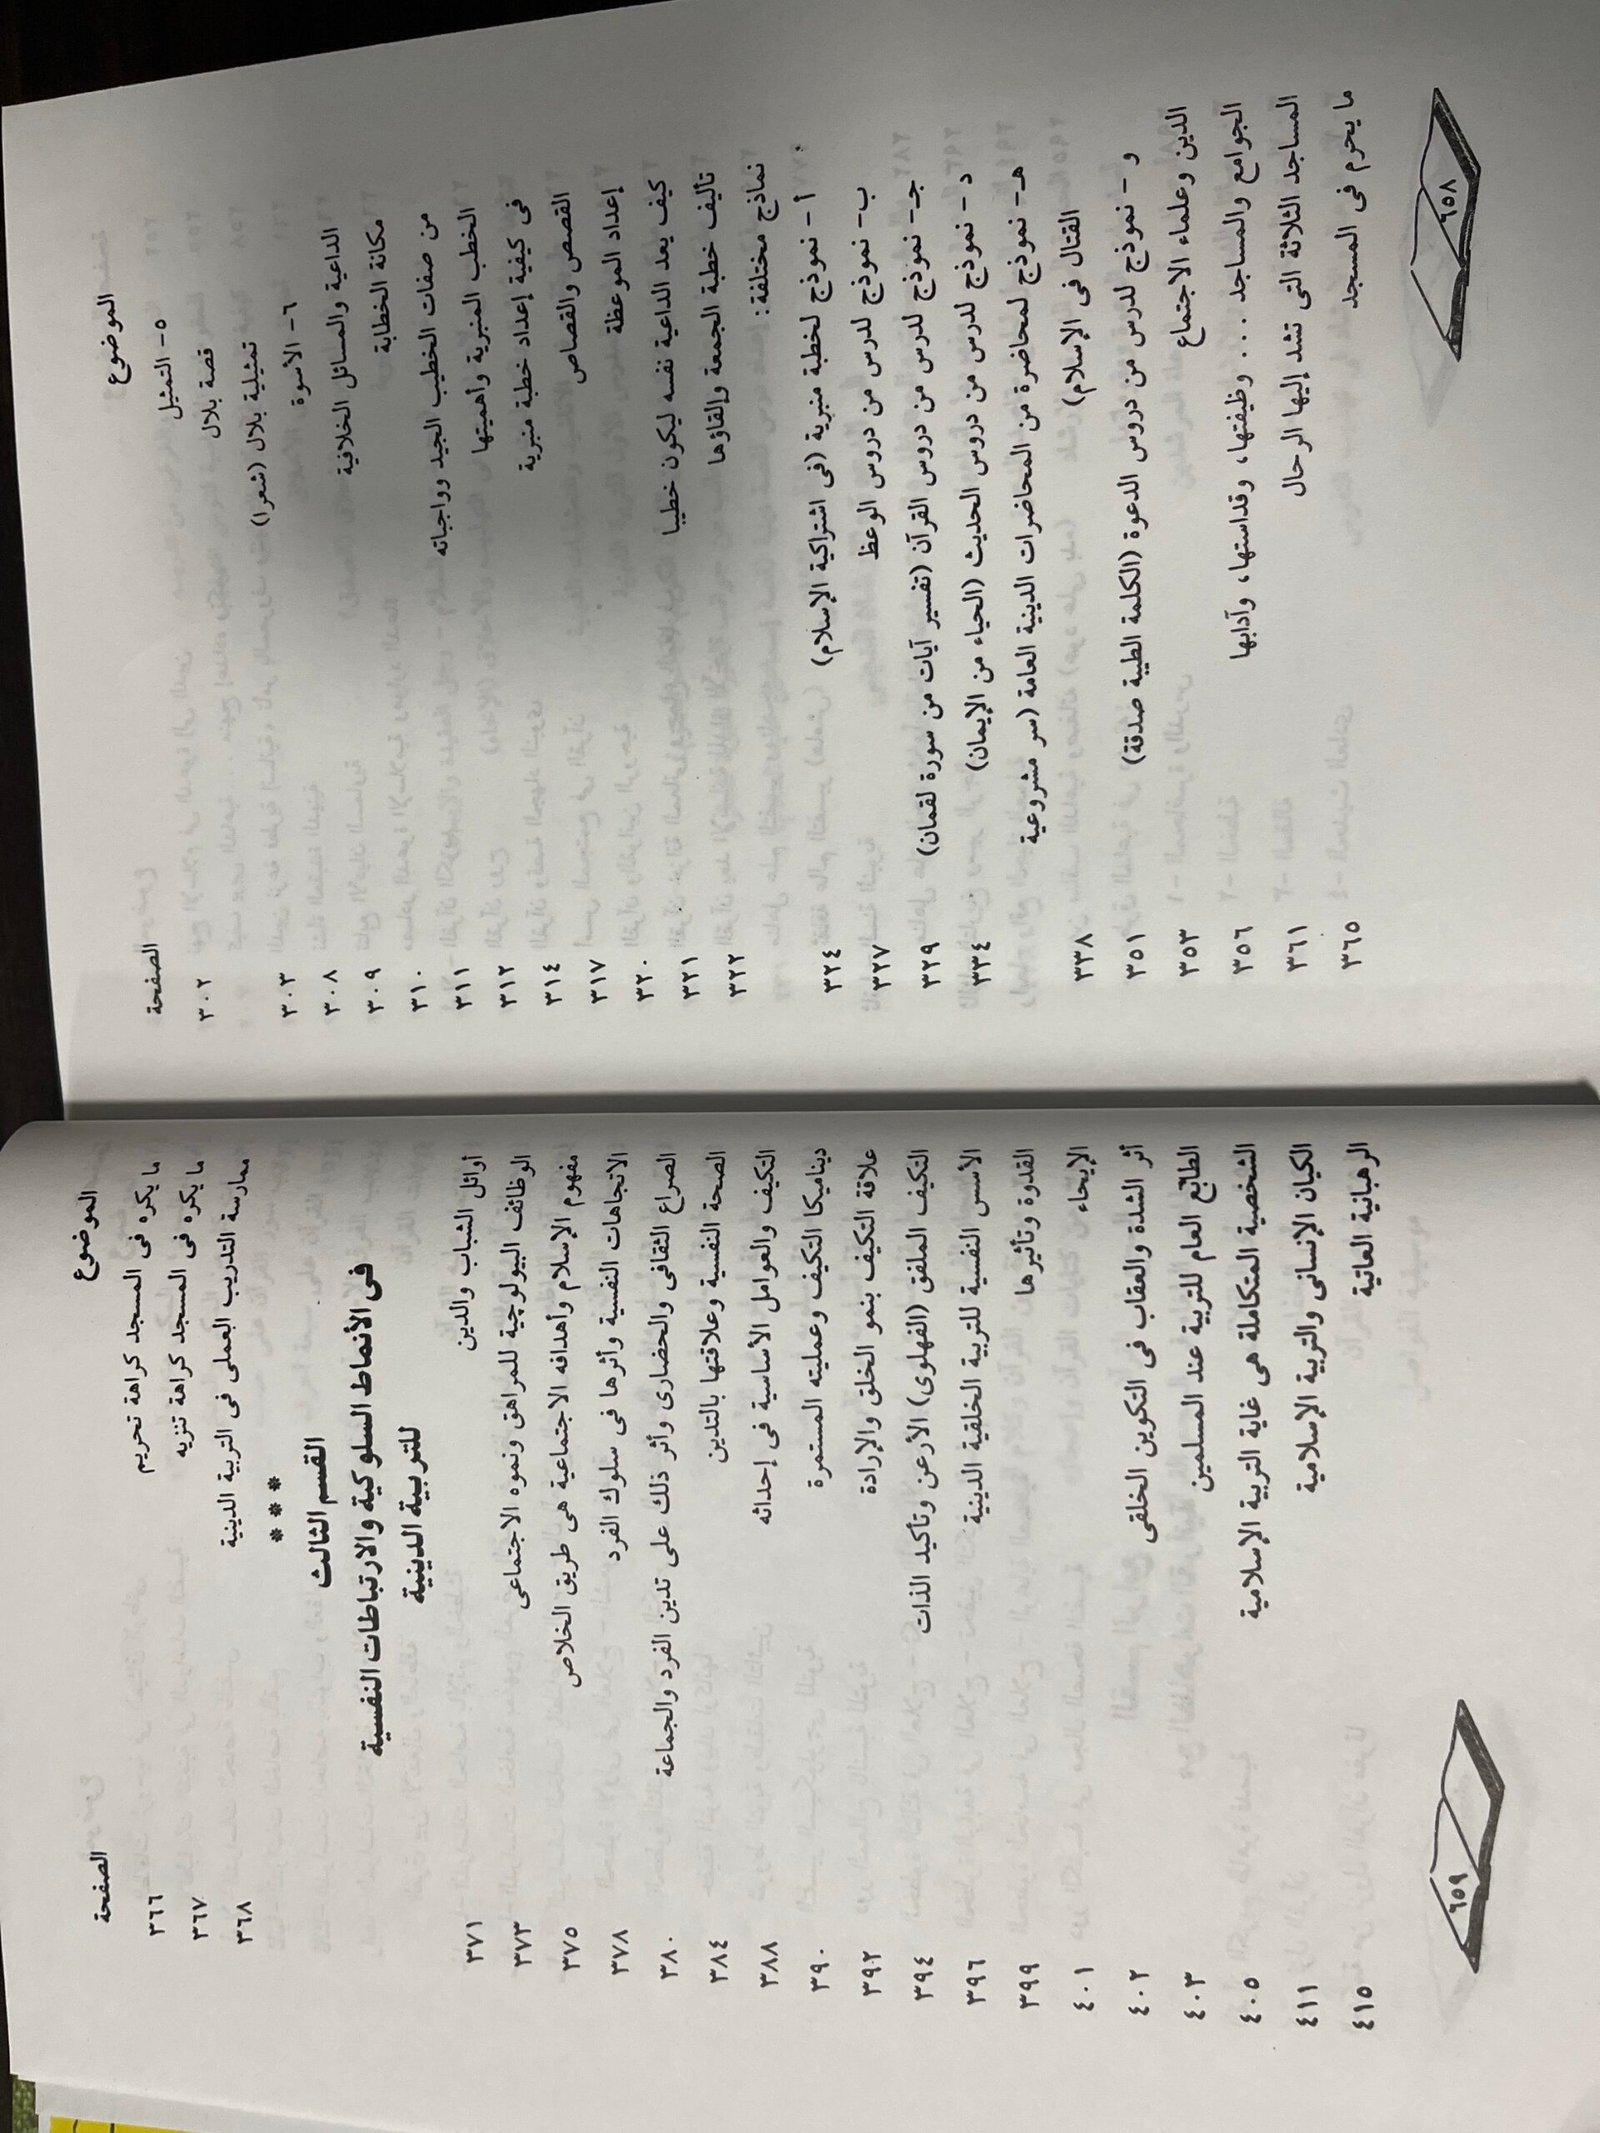 الموضوع الصفحة
٥- التمثيل
قصة بلال ٣٠٢
تمثيلية بلال (شعرا)
٦- الأسوة ٣٠٣
الداعية والمسائل الخلافية ٣٠٨
مكانة الخطابة ٣٠٩
من صفات الخطيب الجيد وواجباته ٣١٠
الخطب المنبرية وأهميتها ٣١١
فى كيفية إعداد خطبة منبرية ٣١٢
القصص والقصاص ٣١٤
إعداد الموعظة ٣١٧
كيف يعد الداعية نفسه ليكون خطيبا ٣٢٠
تأليف خطبة الجمعة وإلقاؤها ٣٢١
نماذج مختلفة: ٣٢٢
أ - نموذج لخطبة منبرية (فى اشتراكية الإسلام) ٣٢٤
ب- نموذج للدرس من دروس الوعظ ٣٢٧
جـ- نموذج للدرس من دروس القرآن (تفسير آيات من سورة لقمان) ٣٢٩
د - نموذج للدرس من دروس الحديث (الحياء من الإيمان) ٣٣٤
هـ- نموذج لمحاضرة من المحاضرات الدينية العامة (سر مشروعية
القتال فى الإسلام) ٣٣٨
و - نموذج للدرس من دروس الدعوة (الكلمة الطيبة صدقة) ٣٥١
الدين وعلماء الاجتماع ٣٥٣
الجوامع والمساجد ... وظيفتها، وقداستها، وآدابها ٣٥٦
المساجد الثلاثة التى تشد إليها الرحال ٣٦١
ما يحرم فى المسجد ٣٦٥
٦٥٨
الموضوع الصفحة
ما يكره فى المسجد كراهة تحريم ٣٦٦
ما يكره فى المسجد كراهة تنزيه ٣٦٧
ممارسة التدريب العملى فى التربية الدينية ٣٦٨
* * *
القسم الثالث
فى الأنماط السلوكية والارتباطات النفسية
للتربية الدينية
أوائل الشباب والدين ٣٧١
الوظائف البيولوچية للمراهق ونموه الاجتماعى ٣٧٣
مفهوم الإسلام وأهدافه الاجتماعية هى طريق الخلاص ٣٧٥
الاتجاهات النفسية وأثرها فى سلوك الفرد ٣٧٨
الصراع الثقافى والحضارى وأثر ذلك على تدين الفرد والجماعة ٣٨٠
الصحة النفسية وعلاقتها بالتدين ٣٨٤
التكيف والعوامل الأساسية فى إحداثه ٣٨٨
ديناميكا التكيف وعمليته المستمرة ٣٩٠
علاقة التكيف بنمو الخلق والإرادة ٣٩٢
التكيف الملفق (الفهلوى) الأرعن وتأكيد الذات ٣٩٤
الأسس النفسية للتربية الخلقية الدينية ٣٩٦
القدوة وتأثيرها ٣٩٩
الإيحاء ٤٠١
أثر الشدة والعقاب فى التكوين الخلقى ٤٠٢
الطابع العام للتربية عند المسلمين ٤٠٣
الشخصية المتكاملة هى غاية التربية الإسلامية ٤٠٥
الكيان الإنسانى والتربية الإسلامية ٤١١
الرهبانية العاتية ٤١٥
٦٥٩